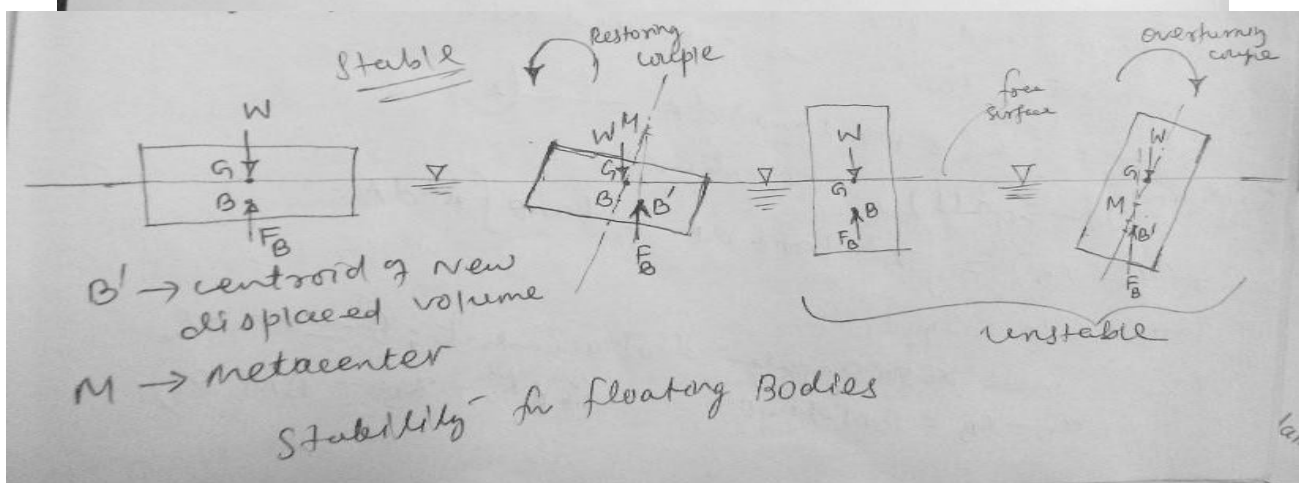 Stable
Restoring
couple
Overturning
couple
free
surface
W
G
B
F_B
W M
G
B B'
F_B
W
G
B
F_B
W
G
M
B'
F_B
B' → centroid of New
displaced volume
M → metacenter
unstable
Stability for floating Bodies